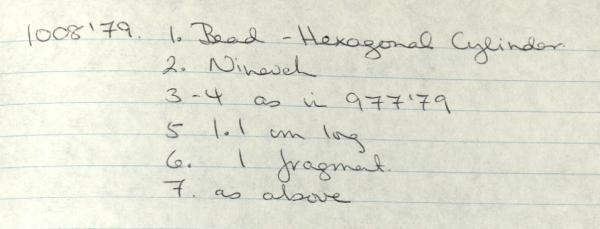 1008'79. 1. Bead - Hexagonal Cylinder.
2. Nineveh
3-4 as in 977'79
5 1.1 cm long
6. 1 fragment.
7. as above